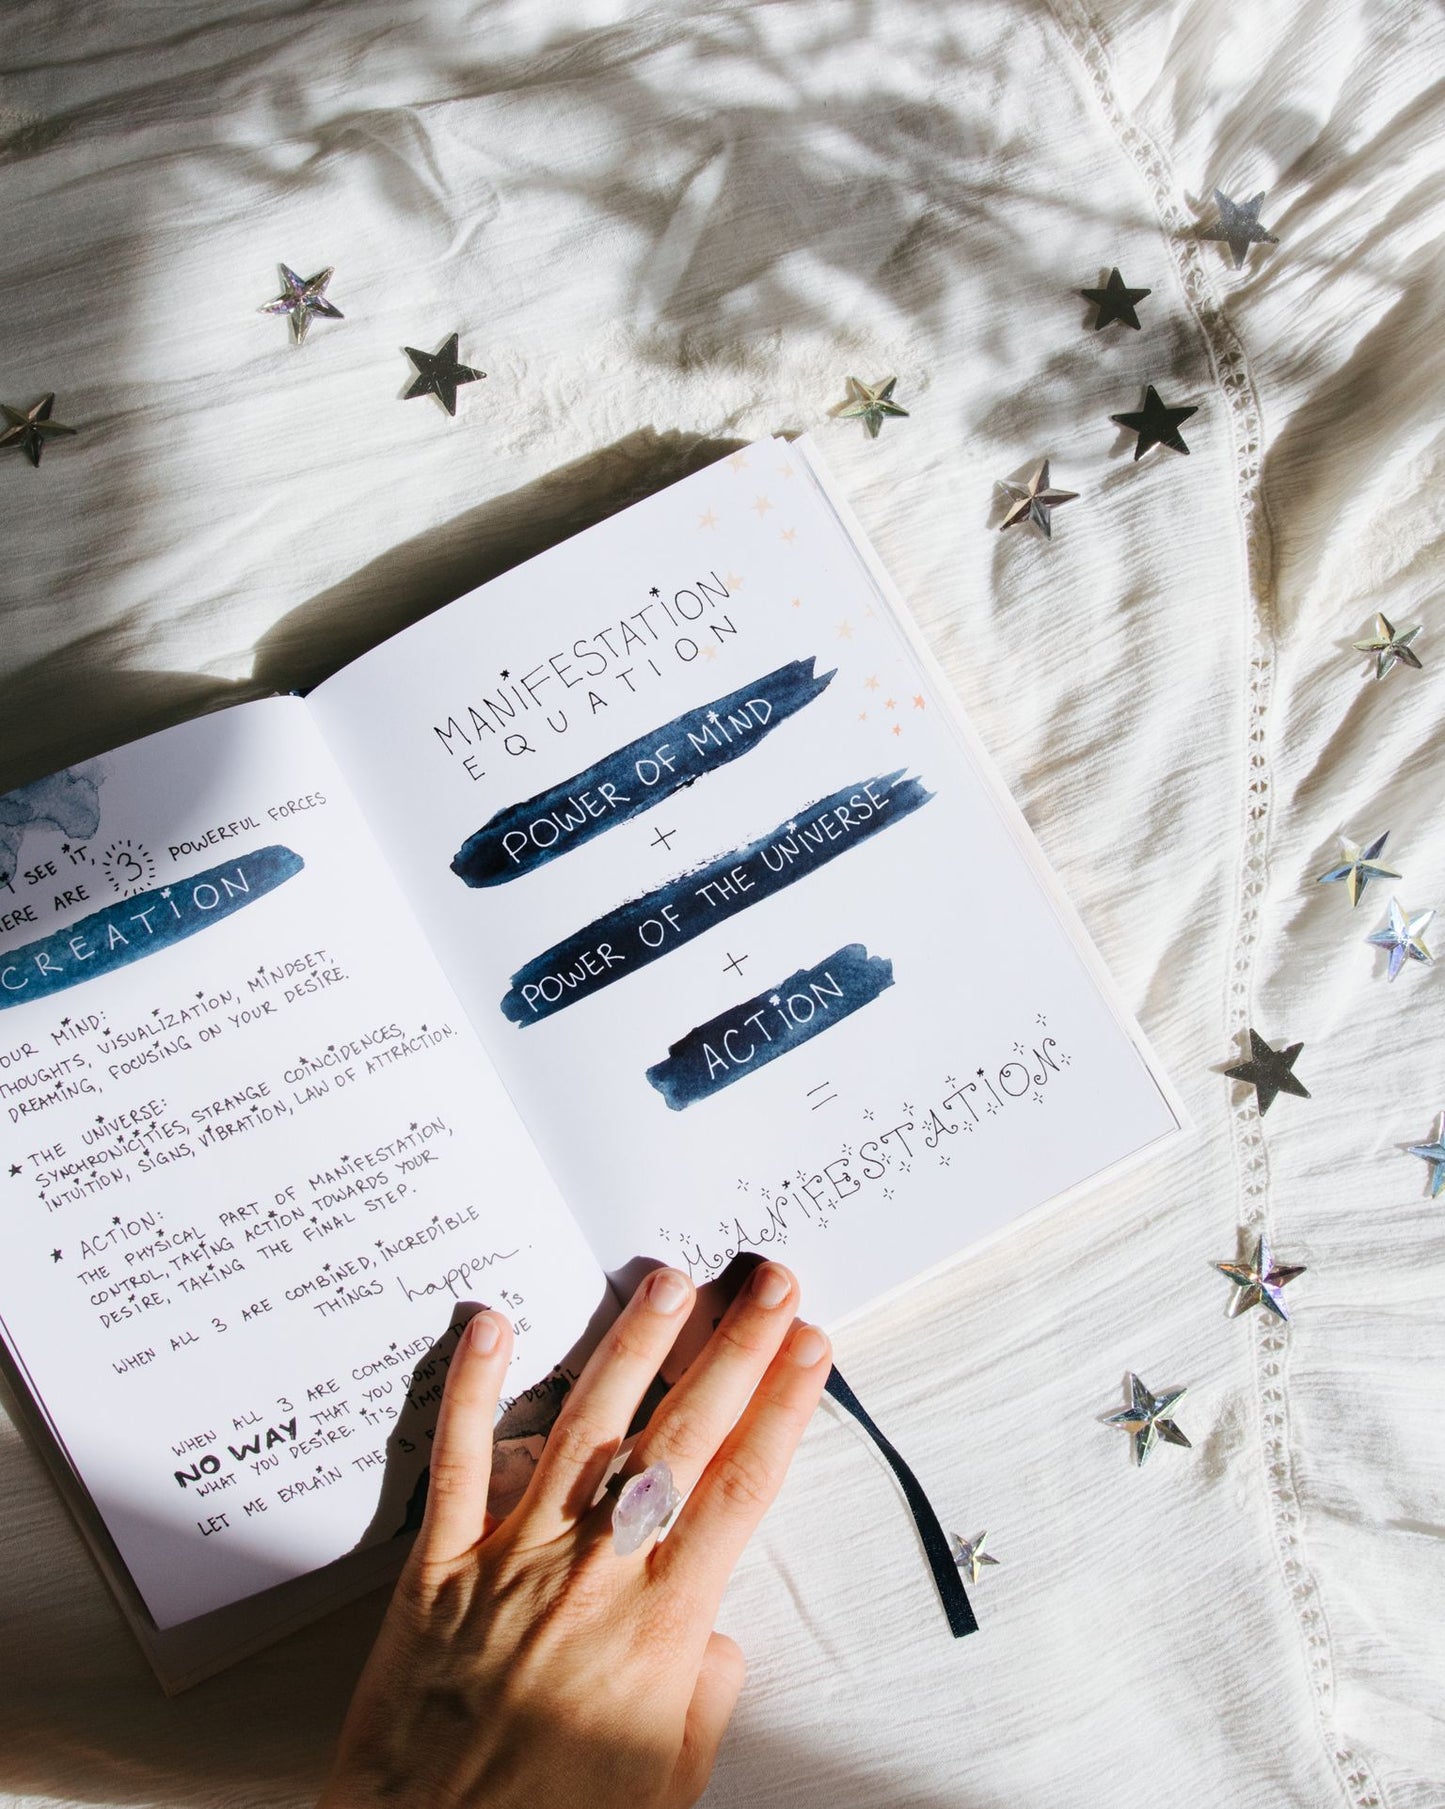 I SEE IT,
ERE ARE 3 POWERFUL FORCES
CREATION
OUR MIND:
THOUGHTS, VISUALIZATION, MINDSET,
DREAMING, FOCUSING ON YOUR DESIRE.
★ THE UNIVERSE:
SYNCHRONICITIES, STRANGE COINCIDENCES,
INTUITION, SIGNS, VIBRATION, LAW OF ATTRACTION.
★ ACTION:
THE PHYSICAL PART OF MANIFESTATION,
CONTROL, TAKING ACTION TOWARDS YOUR
DESIRE, TAKING THE FINAL STEP.
WHEN ALL 3 ARE COMBINED, INCREDIBLE
THINGS happen.
WHEN ALL 3 ARE COMBINED, IS
NO WAY THAT YOU DON'T
WHAT YOU DESIRE. IT'S
LET ME EXPLAIN THE 3 IN DETAIL
MANIFESTATION
EQUATION
POWER OF MIND
+
POWER OF THE UNIVERSE
+
ACTION
=
MANIFESTATION